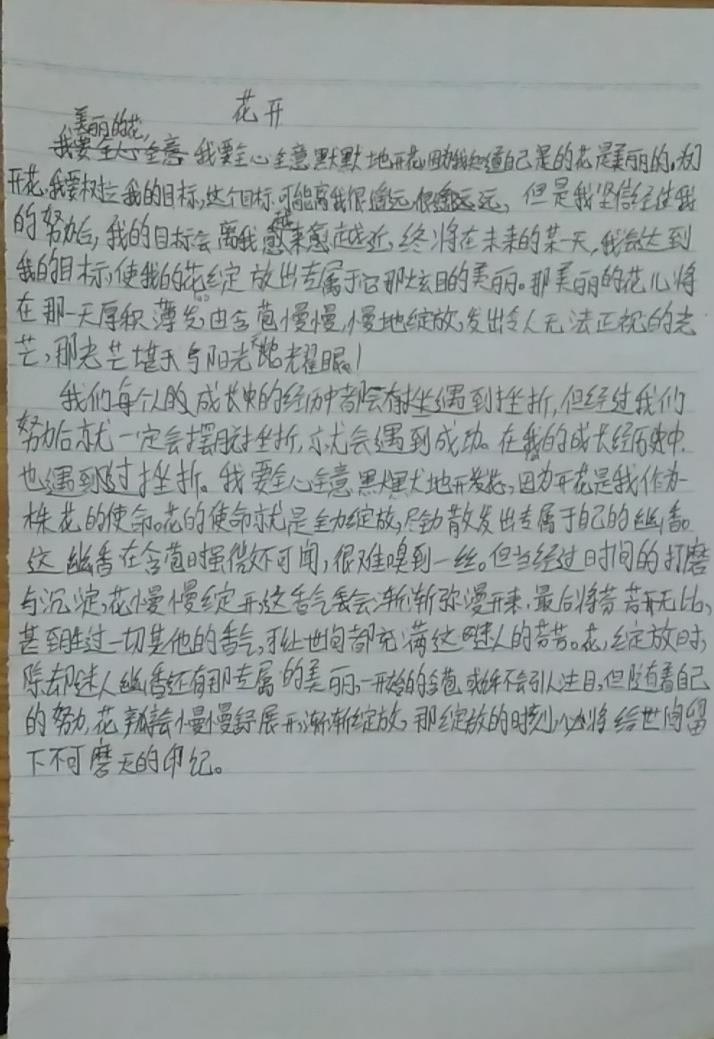 花开
美丽的花,
我要全心全意 我要全心全意默默地开花,因为我知道自己是的花是美丽的,为了
开花,我要树立我的目标,这个目标可能离我很遥远很遥远远,但是我坚信经过我
的努力后,我的目标会离我愈越来愈越近,终将在未来的某一天,我会达到
我的目标,使我的花绽放出专属于它那炫目的美丽。那美丽的花儿将
在那一天厚积薄发,由含苞慢慢,慢慢地绽放,发出令人无法正视的光
芒,那光芒堪于与阳光大比光耀眼!
我们每个人的成长史的经历中都会有挫遇到挫折,但经过我们
努力后就一定会摆脱挫折,就会遇到成功。在我的成长经历史中
也遇到过挫折。我要全心全意默默地开发花,因为开花是我作为一
株花的使命。花的使命就是全力绽放,尽力散发出专属于自己的幽香。
这幽香在含苞时虽微不可闻,很难嗅到一丝。但当经过时间的打磨
与沉淀,花慢慢绽开,这香气会渐渐弥漫开来,最后将芬芳无比,
甚至胜过一切其他的香气,让世间都充满这迷人的芬芳。花,绽放时,
除却迷人幽香还有那专属的美丽,一开始的含苞或许不会引人注目,但随着自己
的努力,花瓣会慢慢舒展开,渐渐绽放,那绽放的时刻,必将给世间留
下不可磨灭的印记。